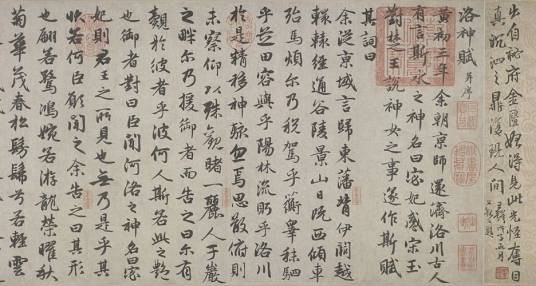 出自秘府金匱始得見此光怪奪目
真沉泗之鼎復現人間
洛神賦 并序
黃初三年余朝京師還濟洛川古人
有言斯水之神名曰宓妃感宋玉
對楚王說神女之事遂作斯賦
其詞曰
余從京域言歸東藩背伊闕越
轘轅經通谷陵景山日既西傾車
殆馬煩尔乃稅駕乎蘅皋秣駟
乎芝田容與乎陽林流眄乎洛川
於是精移神駭忽焉思散俯則
未察仰以殊觀睹一麗人于巖
之畔尔乃援御者而告之曰尔有
覿於彼者乎彼何人斯若此之艷
也御者對曰臣聞河洛之神名曰宓
妃則君王之所見也無乃是乎其
狀若何臣願聞之余告之曰其形
也翩若驚鴻婉若游龍榮曜秋
菊華茂春松髣髴兮若輕雲